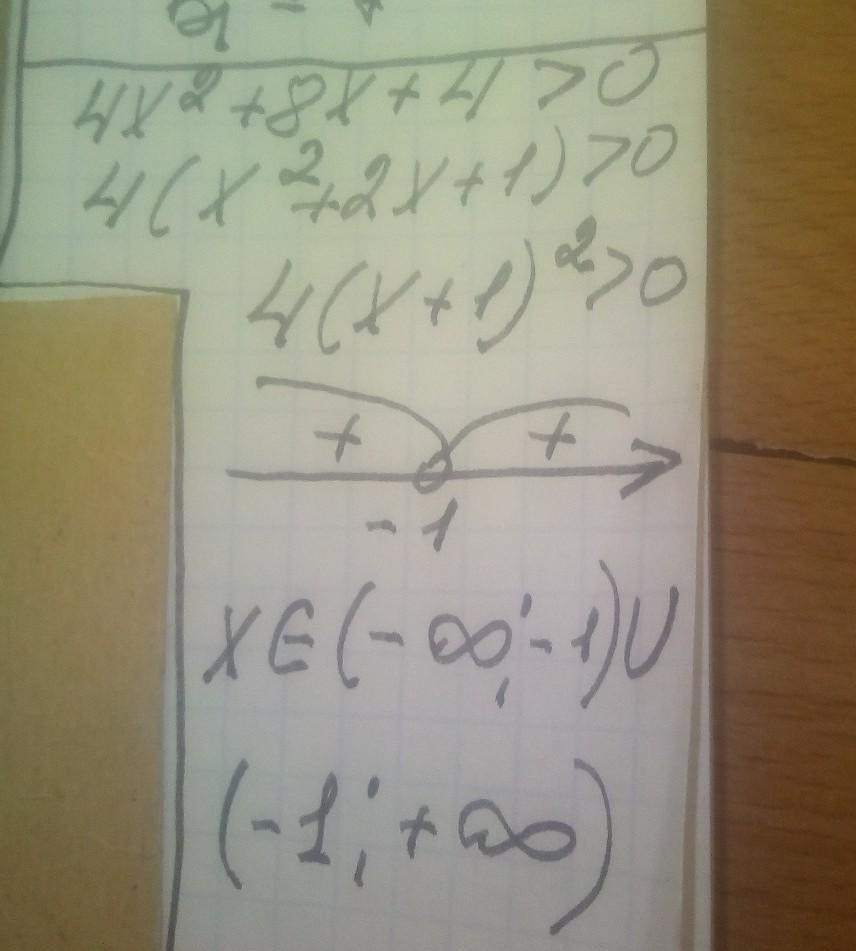 4x²+8x+4>0
4(x²+2x+1)>0
4(x+1)²>0
+ +
-1
x∈(-∞;-1)∪
(-1;+∞)